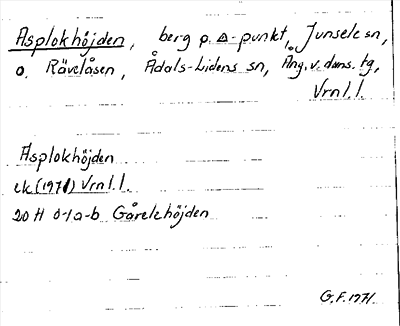 Asplokhöjden, berg p. △-punkt, Junsele sn,
o. Rävelåsen, Ådals-Lidens sn, Ång. v. doms. tg,
Vrnl. l.
Asplokhöjden
ek (1971) Vrnl. l.
20 H 0-1 a-b Gårelehöjden
G.F. 1971.